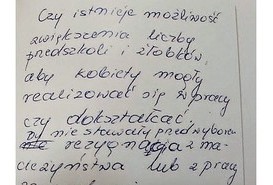 Czy istnieje możliwość
zwiększenia liczby
przedszkoli i żłobków,
aby kobiety mogły
realizować się w pracy
czy dokształcać,
nie stawały przed wyborem
rezygnacja z ma-
cierzyństwa lub z pracy